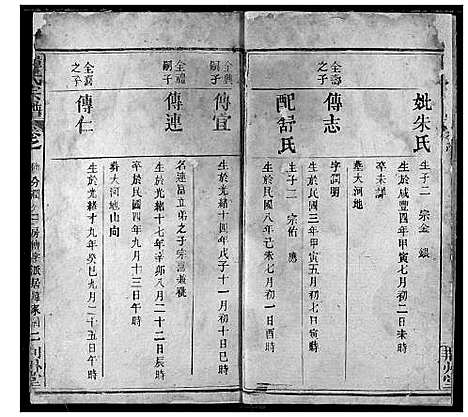 妣朱氏
生於咸豐四年甲寅七月初二日未時
卒未詳
生子二 宗金 銀
全壽之子
傳志
生於民國三年甲寅五月初七日寅時
字潤明
墓大河地
配舒氏
生於民國八年己未七月初一日午時
生子二 宗佑 應
全興嗣子
傳宜
生於光緒十四年戊子十一月初十日巳時
名連富立弟之子宗濤兼祧
全禮嗣子
傳連
生於光緒十七年辛卯八月二十二日辰時
卒於民國四年九月十三日午時
葬大河地山向
全壽之子
傳仁
生於光緒十九年癸巳九月二十五日午時